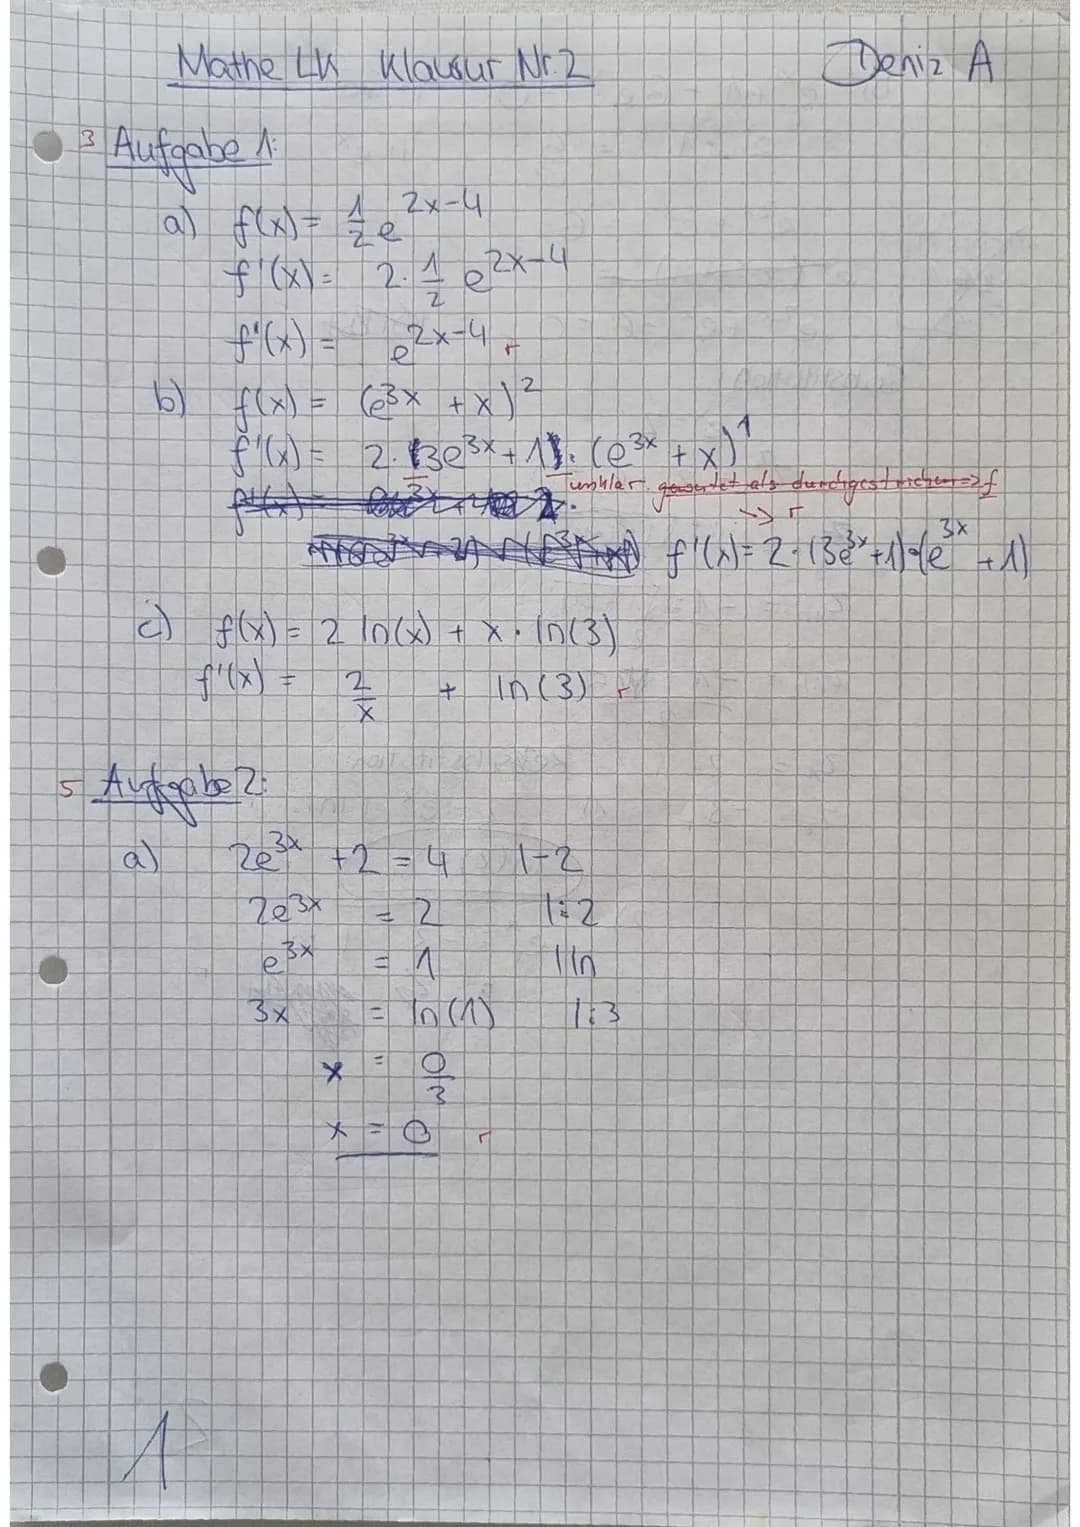 Mathe LK Klausur Nr. 2 Deniz A
3 Aufgabe 1:
a) f(x) = 1/2 e^(2x-4)
f'(x) = 2 · 1/2 e^(2x-4)
f'(x) = e^(2x-4) r
b) f(x) = (e^(3x) + x)^2
f'(x) = 2 · (3e^(3x) + 1) · (e^(3x) + x)^1
unklar gewertet als durchgestrichen => f
-> r
f'(x) = 2 · (3e^(3x) + 1) · (e^(3x) + 1)
c) f(x) = 2 ln(x) + x · ln(3)
f'(x) = 2/x + ln(3) r
5 Aufgabe 2:
a) 2e^(3x) + 2 = 4 |-2
2e^(3x) = 2 |:2
e^(3x) = 1 |ln
3x = ln(1) |:3
x = 0/3
x = 0 r
1